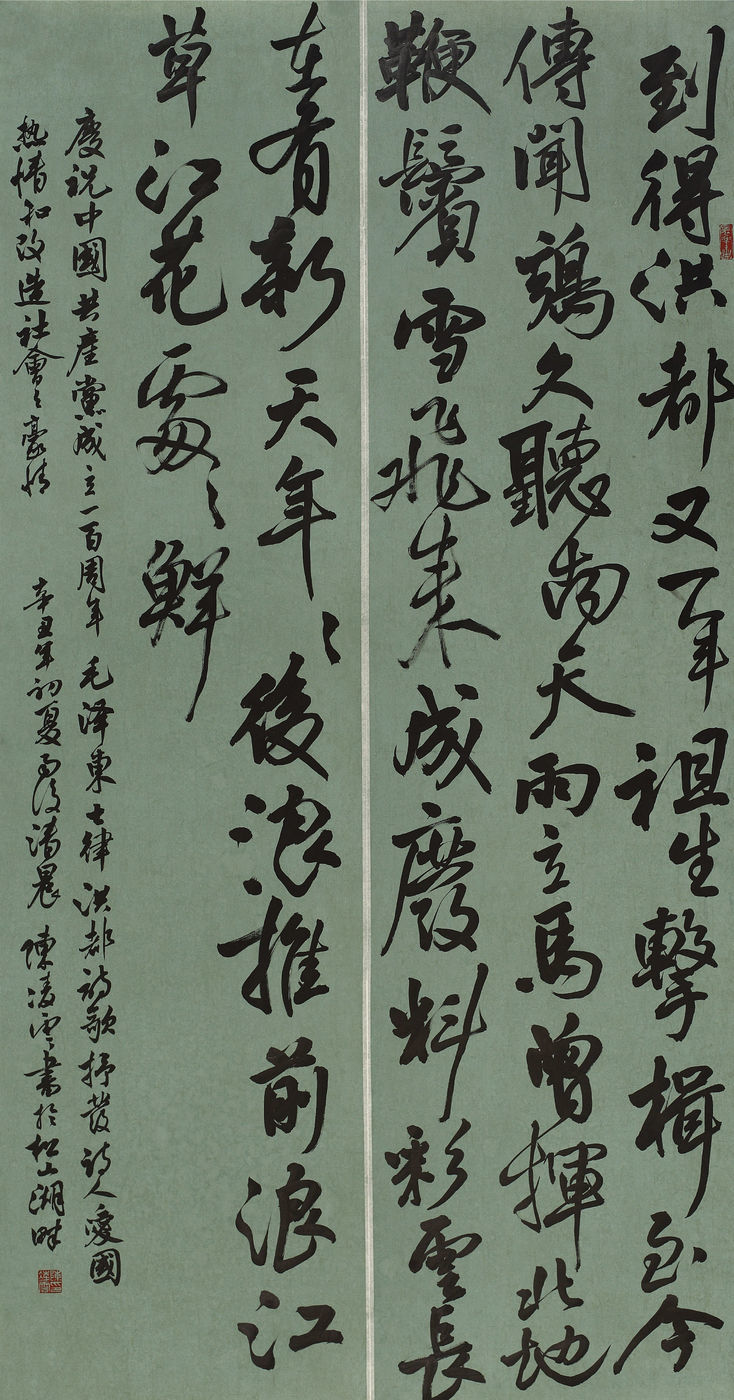 到得洪都又一年祖生擊楫至今
傳聞鷄久聽南天雨立馬曾揮北地
鞭鬢雪飛来成廢料彩雲長
在有新天年〻後浪推前浪江
草江花處〻鮮
慶祝中國共產黨成立一百周年 毛泽東七律洪都詩歌抒發詩人愛國
热情和改造社會〻豪情 辛丑年初夏雨後清晨 陳凌雲書於松山湖畔